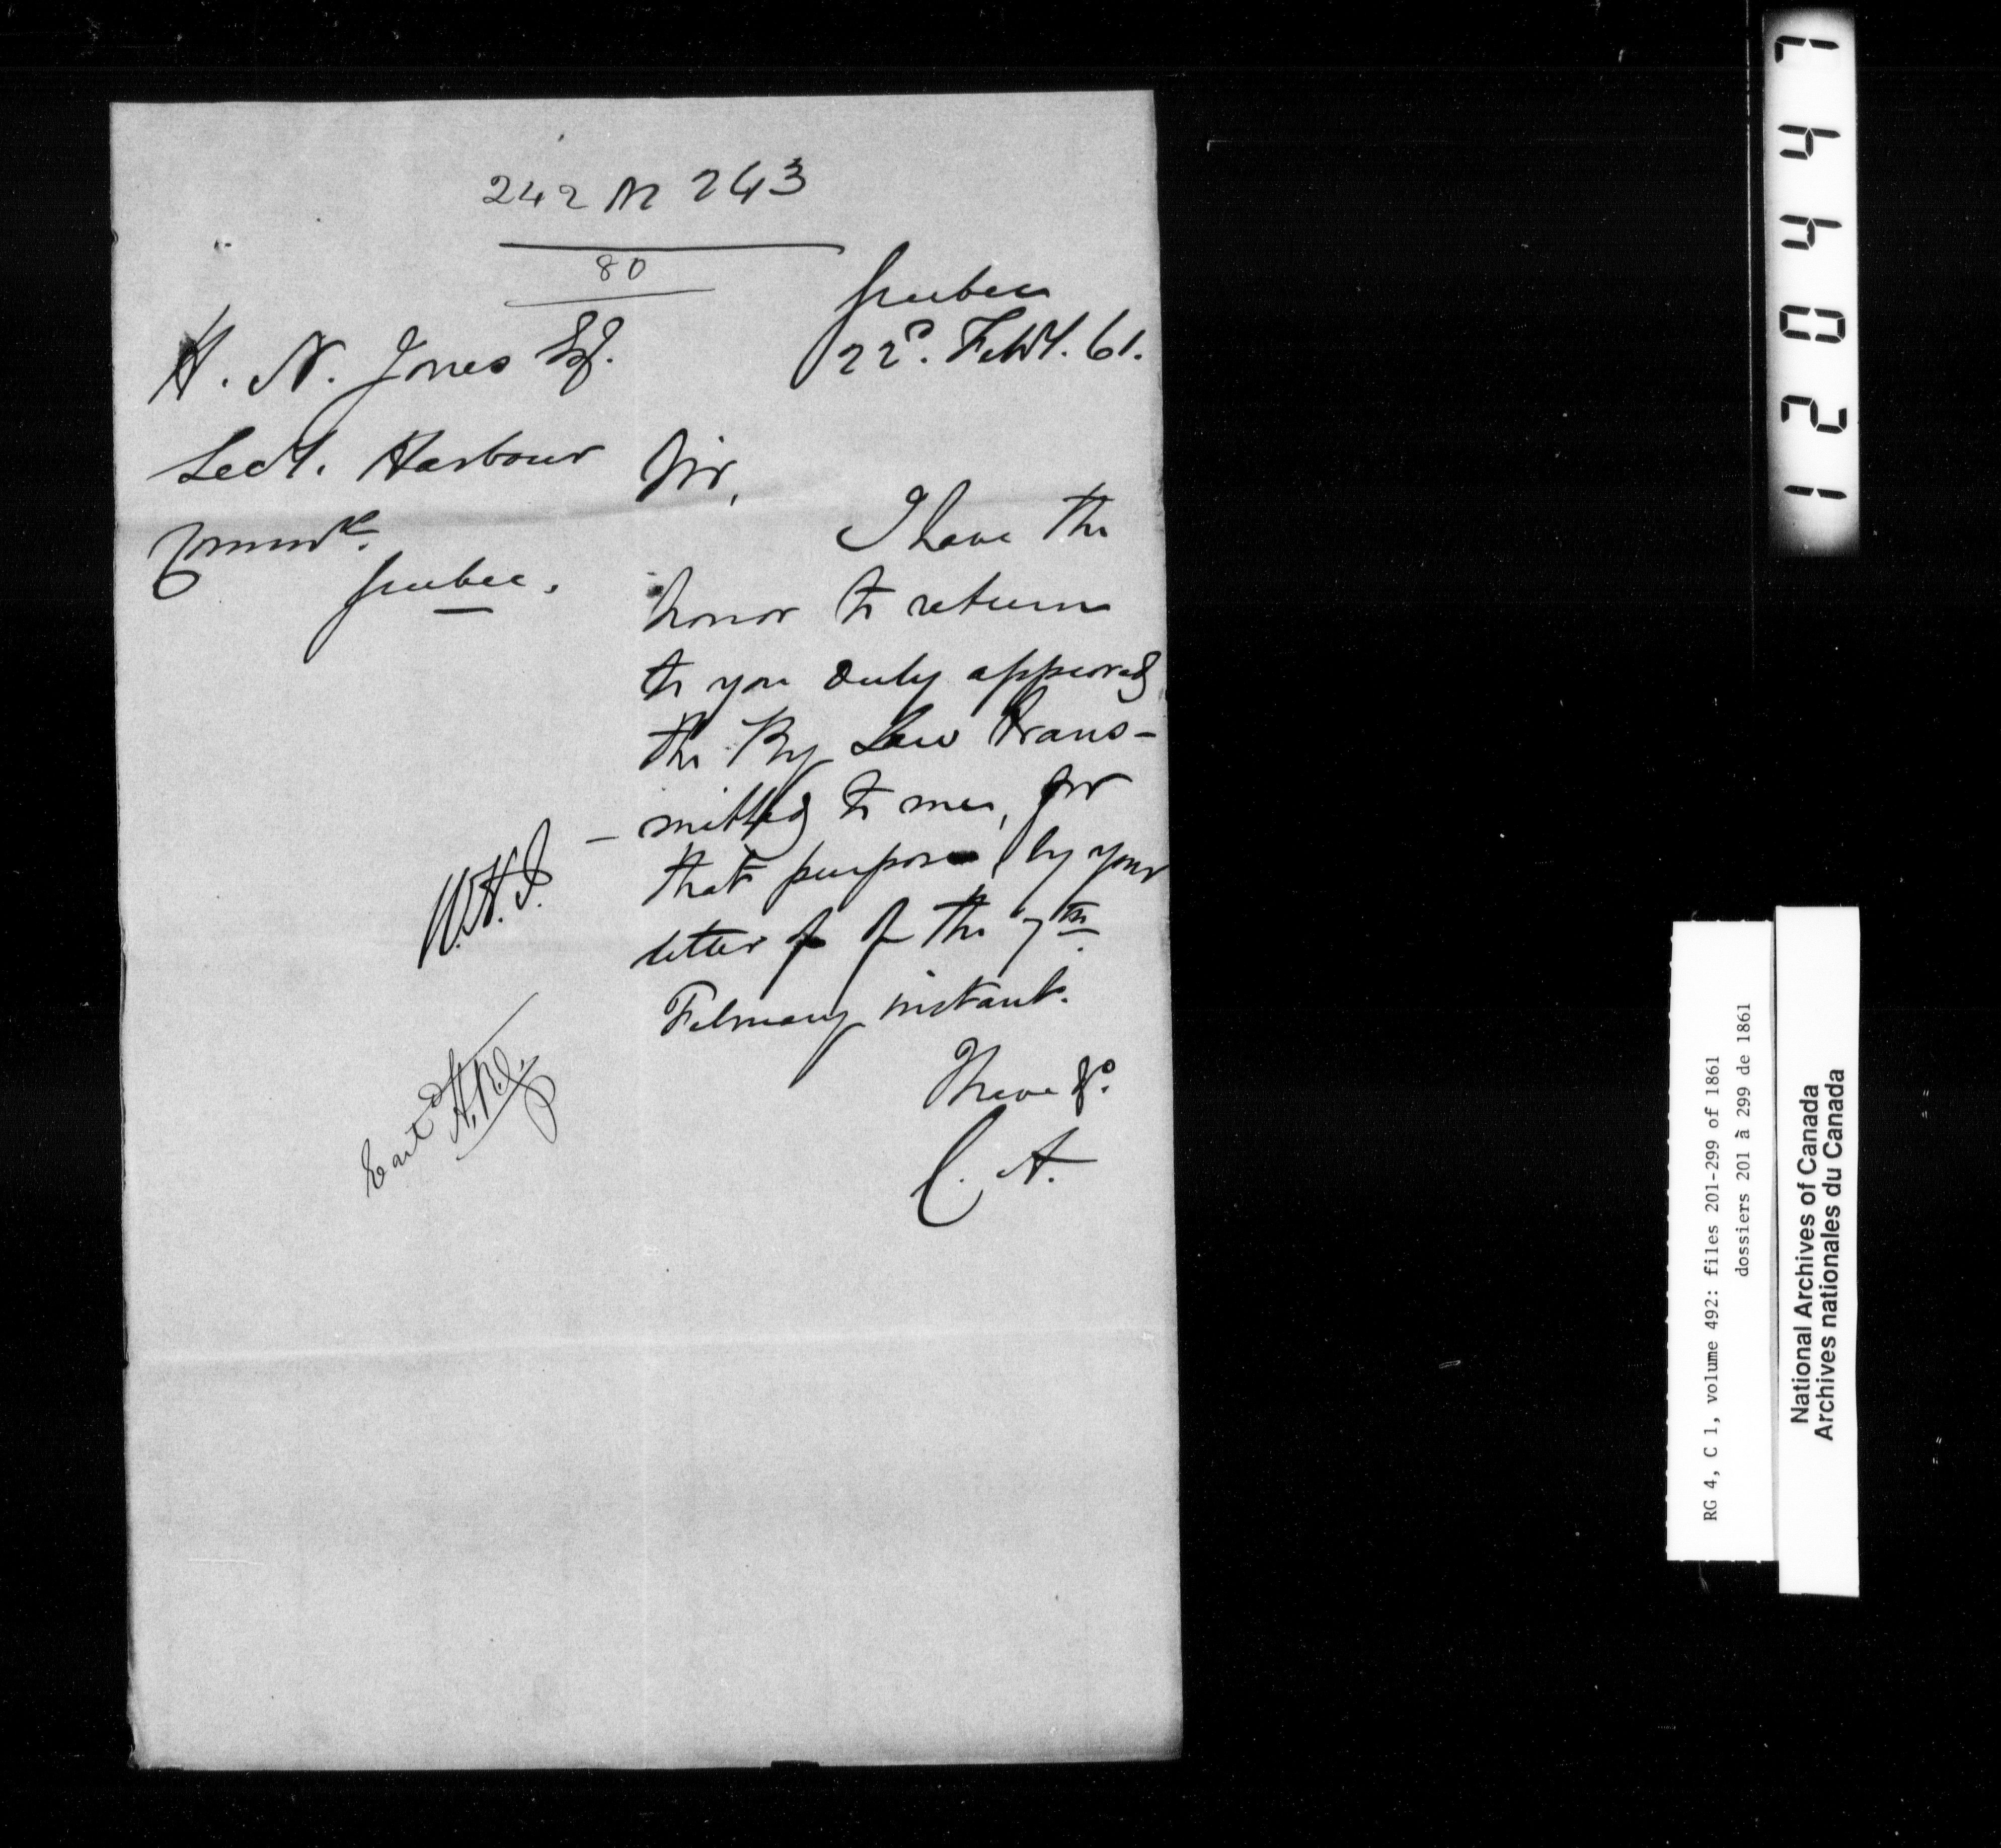 242 N 243
80
Quebec
22d. Feby. 61.
H. N. Jones Esq.
Secy. Harbour
Commrs.
Quebec.
Sir,
I have the
honor to return
to you duly approved
the By Law trans-
- mitted to me, for
that purpose, by your
letter of the 7th
February instant.
I have &c.
C. A.
W.H.J.
Entd
120447
RG 4, C 1, volume 492: files 201-299 of 1861
dossiers 201 à 299 de 1861
National Archives of Canada
Archives nationales du Canada